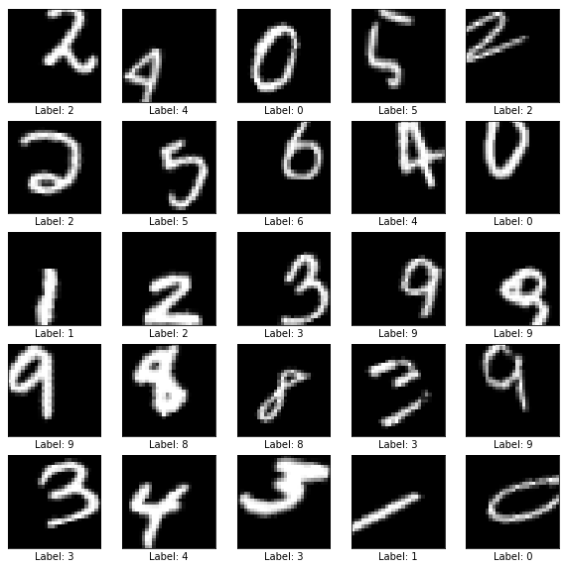 2 4 0 5 2
Label: 2 Label: 4 Label: 0 Label: 5 Label: 2
2 5 6 4 0
Label: 2 Label: 5 Label: 6 Label: 4 Label: 0
1 2 3 9 9
Label: 1 Label: 2 Label: 3 Label: 9 Label: 9
9 8 8 3 9
Label: 9 Label: 8 Label: 8 Label: 3 Label: 9
3 4 3 1 0
Label: 3 Label: 4 Label: 3 Label: 1 Label: 0